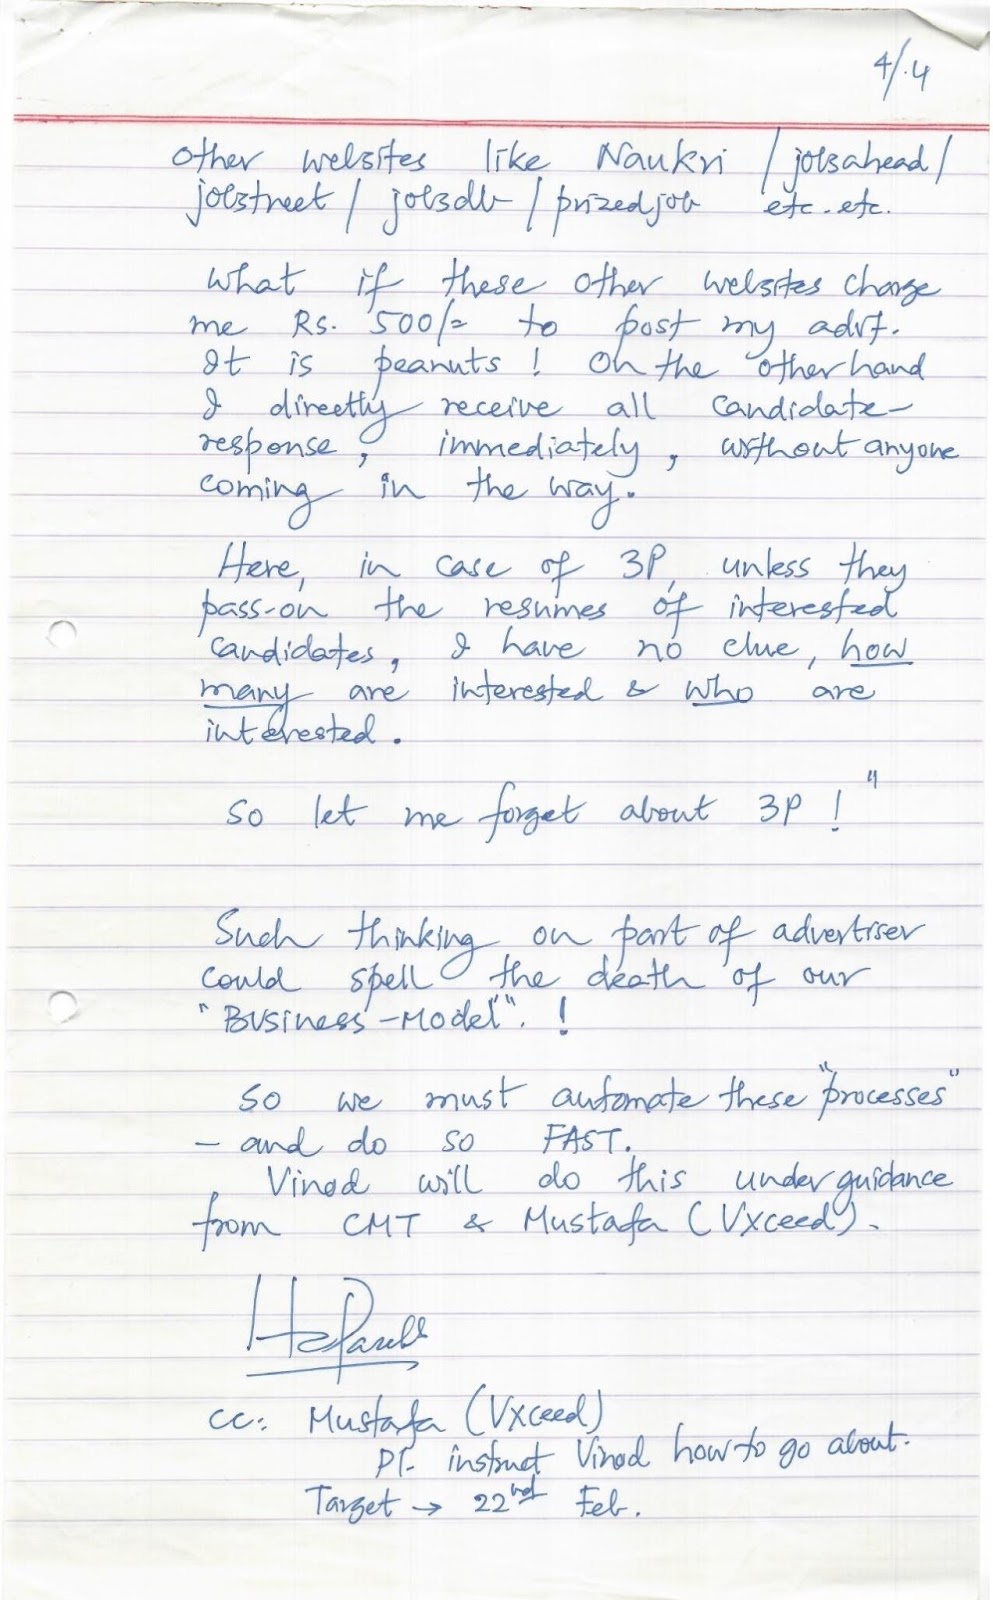 4/.4
Other websites like Naukri / jobsahead /
jobstreet / jobsdb / prizedjob etc. etc.
What if these other websites charge
me Rs. 500/= to post my advt.
It is peanuts ! On the other hand
I directly receive all candidate-
response, immediately, without anyone
coming in the way.
Here, in case of 3P, unless they
pass-on the resumes of interested
candidates, I have no clue, how
many are interested & who are
interested.
So let me forget about 3P ! "
Such thinking on part of advertiser
could spell the death of our
"Business-Model". !
So we must automate these "processes"
- and do so FAST.
Vinod will do this under guidance
from CMT & Mustafa (Vxceed).
cc: Mustafa (Vxceed)
Pl. instruct Vinod how to go about.
Target → 22nd Feb.